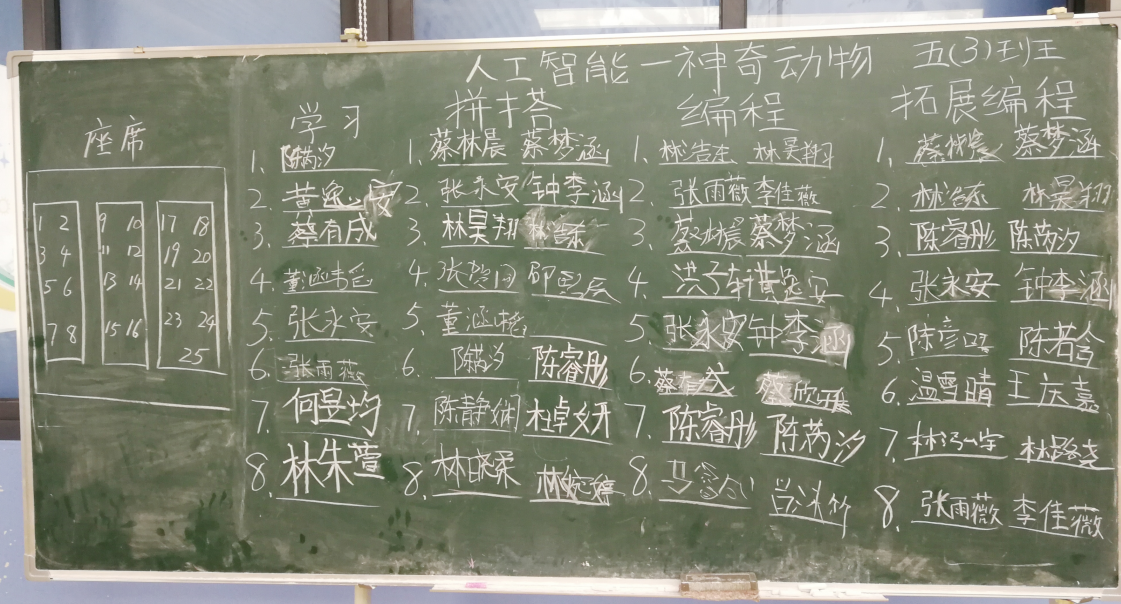 人工智能—神奇动物 五(3)班
座席
1 2 9 10 17 18
3 4 11 12 19 20
5 6 13 14 21 22
7 8 15 16 23 24
25
学习
1.
2. 黄 安
3. 蔡有成
4. 董涵
5. 张永安
6. 张雨薇
7. 何昱均
8. 林朱萱
拼搭
1. 蔡林晨 蔡梦涵
2. 张永安 钟李涵
3. 林昊翔 林浩东
4. 张
5. 董涵
6. 陈芮汐 陈睿彤
7. 陈静娴 杜卓妍
8. 林晓柔 林婉婷
编程
1. 林浩东 林昊翔
2. 张雨薇 李佳薇
3. 蔡林晨 蔡梦涵
4. 洪子轩 黄 安
5. 张永安 钟李涵
6. 蔡有成 蔡欣雅
7. 陈睿彤 陈芮汐
8.
拓展编程
1. 蔡林晨 蔡梦涵
2 林浩东 林昊翔
3. 陈睿彤 陈芮汐
4. 张永安 钟李涵
5. 陈彦 陈若含
6. 温雪晴 王庆嘉
7. 林
8. 张雨薇 李佳薇